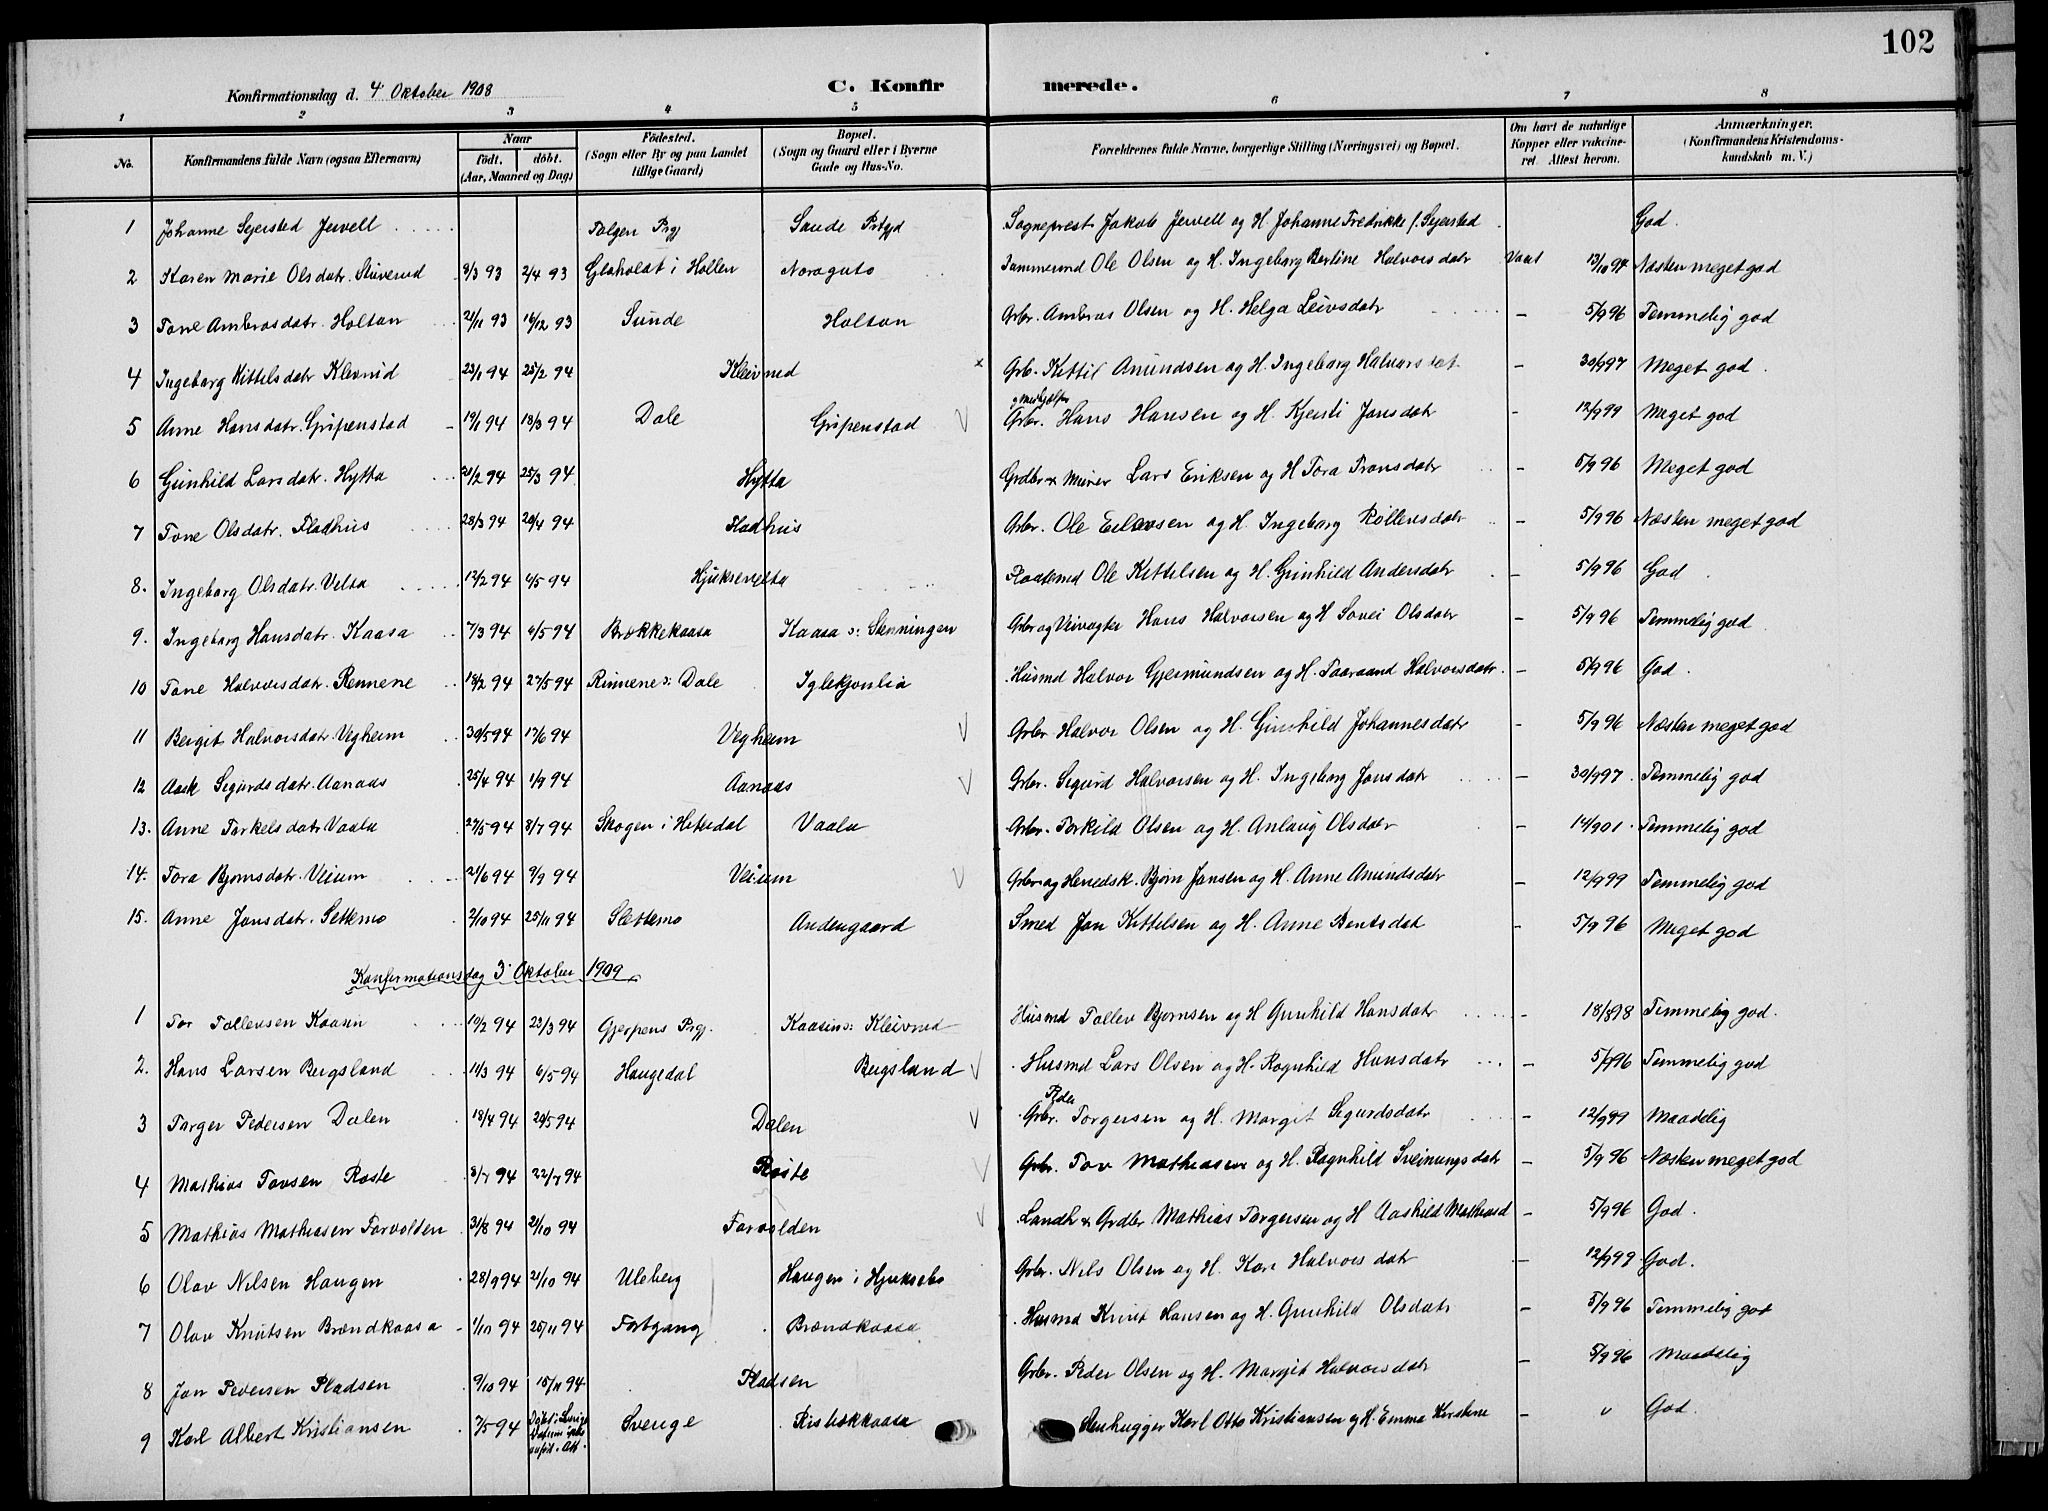 102
Konfirmationsdag d. 4 Oktober 1908
C. Konfirmerede.
1 2 3 4 5 6 7 8
No. | Konfirmandens fulde Navn (ogsaa Efternavn) | Naar födt. döbt. (Aar, Maaned og Dag) | Födested. (Sogn eller By og paa Landet tillige Gaard) | Bopæl. (Sogn og Gaard eller i Byerne Gade og Hus-No. | Forældrenes fulde Navne, borgerlige Stilling (Næringsvei) og Bopæl. | Om havt de naturlige Kopper eller vaccineret. Attest herom. | Anmærkninger. (Konfirmandens Kristendomskundskab m. V.)
1 Johanne Sejersted Jervell Tolgen Prgj Saude Prtgjd Sogneprest Jakob Jervell og H. Johanne Fredrikke f. Sejersted God.
2 Karen Marie Olsdatr. Stuverud 8/3 93 2/4 93 i Hollen Ole Olsen og H. Ingeborg Bertine Halvorsdatr Vact 13/10 94 Næsten meget god
3 Tone Ambrosdatr. Holtan 21/11 93 16/12 93 Sunde Holtan Grbr. Ambros Olsen og H. Helga Leivsdatr - 5/9 96 Temmelig god
4 Ingeborg Kittilsdatr Klevrud 23/1 94 25/2 94 Kleivrud × Grb. Kittil Amundsen og H. Ingeborg Halvorsdat - 30/9 97 Meget god.
5 Anne Hansdatr. Gripenstad 19/1 94 18/3 94 Dale Gripenstad V Grbr. Hans Hansen og H. Kjersti Jonsdatr - 12/9 99 Meget god
6 Gunhild Larsdatr. Hytta 20/2 94 25/3 94 Hytta Grdbr & Murer Lars Eriksen og H Tora Tronsdatr - 5/9 96 Meget god
7 Tone Olsdatr. Fladhus 28/3 94 20/4 94 Fladhus Grbr. Ole Eilevsen og H. Ingeborg Røllevsdatr - 5/9 96 Næsten meget god
8. Ingeborg Olsdatr. Velta 12/2 94 6/5 94 Hjukservelta Pladsmd Ole Kittelsen og H. Gunhild Andersdatr - 5/9 96 God
9. Ingeborg Hansdatr. Kaasa 7/3 94 6/5 94 Brækkekaasa Kaasa s: Sønningen Grbr og Veivogter Hans Halvorsen og H Sovei Olsdatr - 5/9 96 Temmelig god
10 Tone Halvorsdatr. Rennene 18/2 94 27/5 94 Rinnene s: Dale Iglekjønlia Husmd Halvor Gjermundsen og H. Taaraand Halvorsdatr. - 5/9 96 God.
11 Bergit Halvorsdatr. Vegheim 30/5 94 17/6 94 Vegheim V Grbr. Halvor Olsen og H. Gunhild Johannesdatr - 5/9 96 Næsten meget god
12 Aase Sigurdsdatr. Aanaas 25/4 94 1/9 94 Aanaas V Grbr. Sigurd Halvorsen og H. Ingeborg Jonsdatr - 30/9 97. Temmelig god
13. Anne Torkelsdatr Vaala 27/5 94 8/7 94 Skogen i Hitterdal Vaala Grbr. Torkild Olsen og H. Anlaug Olsdatr - 14/901. Temmelig god
14. Tora Bjørnsdatr. Veium 21/6 94 9/9 94 Veium V Grbr og Herredsk. Bjørn Jonsen og H. Anne Amundsdatr - 12/9 99 Temmelig god
15. Anne Jonsdatr. Slettemo 2/10 94 25/11 94 Slettemo Andengaard Smed Jon Kittelsen og H. Anne Bentsdat - 5/9 96 Meget god
Konfirmationsdag 3. Oktober 1909
1 Tor Tollevsen Kaasin 10/2 94 23/3 94 Gjerpens Prgj. Kaasin s: Kleivrud Husmd Tollev Bjørnsen og H Gunhild Hansdatr - 18/8 98 Temmelig god.
2. Hans Larsen Bergsland 11/3 94 6/5 94 Haugedal Bergsland V Husmd Lars Olsen og H. Ragnhild Hansdatr - 5/9 96 Temmelig god
3 Torger Pedersen Dalen 18/4 94 20/5 94 Dalen V Grbr. Peder Torgersen og H. Margit Sigurdsdatr - 12/9 99 Maadelig
4 Mathias Tovsen Roste 3/7 94 22/7 94 Røste V Grbr. Tov Mathiasen og H. Ragnhild Sveinungsdatr - 5/9 96 Næsten meget god
5 Mathias Mathiasen Farvolden 31/8 94 21/10 94 Farvolden V Landh & Grdbr Mathias Torgersen og H Aashild Mathiasd - 5/9 96 God.
6 Olav Nilsen Haugen 28/9 94 21/10 94 Uleberg Haugen i Hjuksebø Grbr. Nils Olsen og H. Kari Halvorsdatr - 12/9 99 God.
7 Olav Knutsen Brændkaasa 1/10 94 25/11 94 Fortgang Brændkaasa Husmd Knut Hansen og H. Gunhild Olsdatr - 5/9 96 Temmelig god
8 Jon Pedersen Pladsen 9/10 94 18/11 94 Pladsen Grbr. Peder Olsen og H. Margit Halvorsdatr - 5/9 96 Maadelig
9 Karl Albert Kristiansen 7/5 94 Døbt i Sverige Datum ikke anført. Att. Sverige Risbækkaasa Stenhugger Karl Otto Kristiansen og H. Emma Kirstine - God.